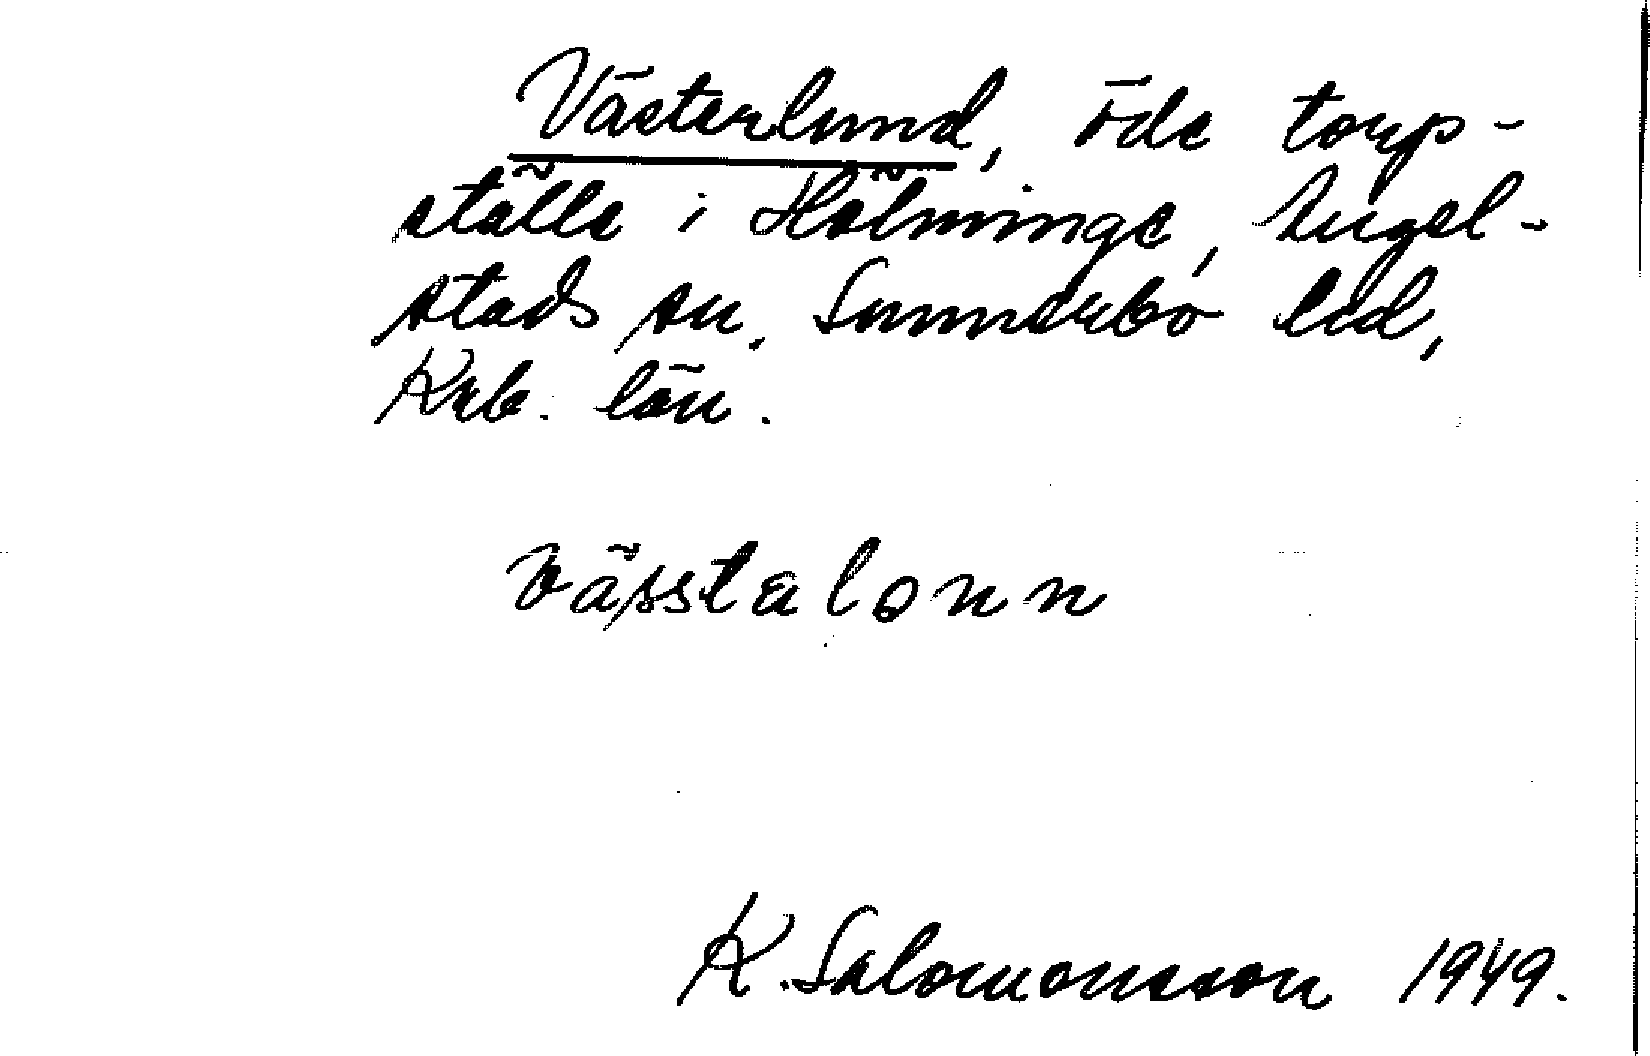 Västerlund, öde torp-
ställe i Hölminge, Angel-
stads sn. Sunnerbo hd,
Krb. län.
vässtalonn
K. Salomonsson 1949.